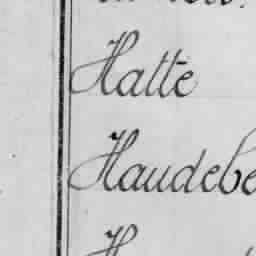 Hatte
Haudebe